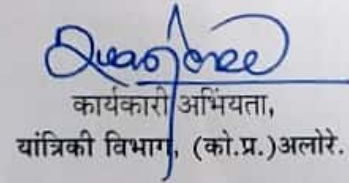 कार्यकारी अभियंता,
यांत्रिकी विभाग, (को.प्र.)अलोरे.